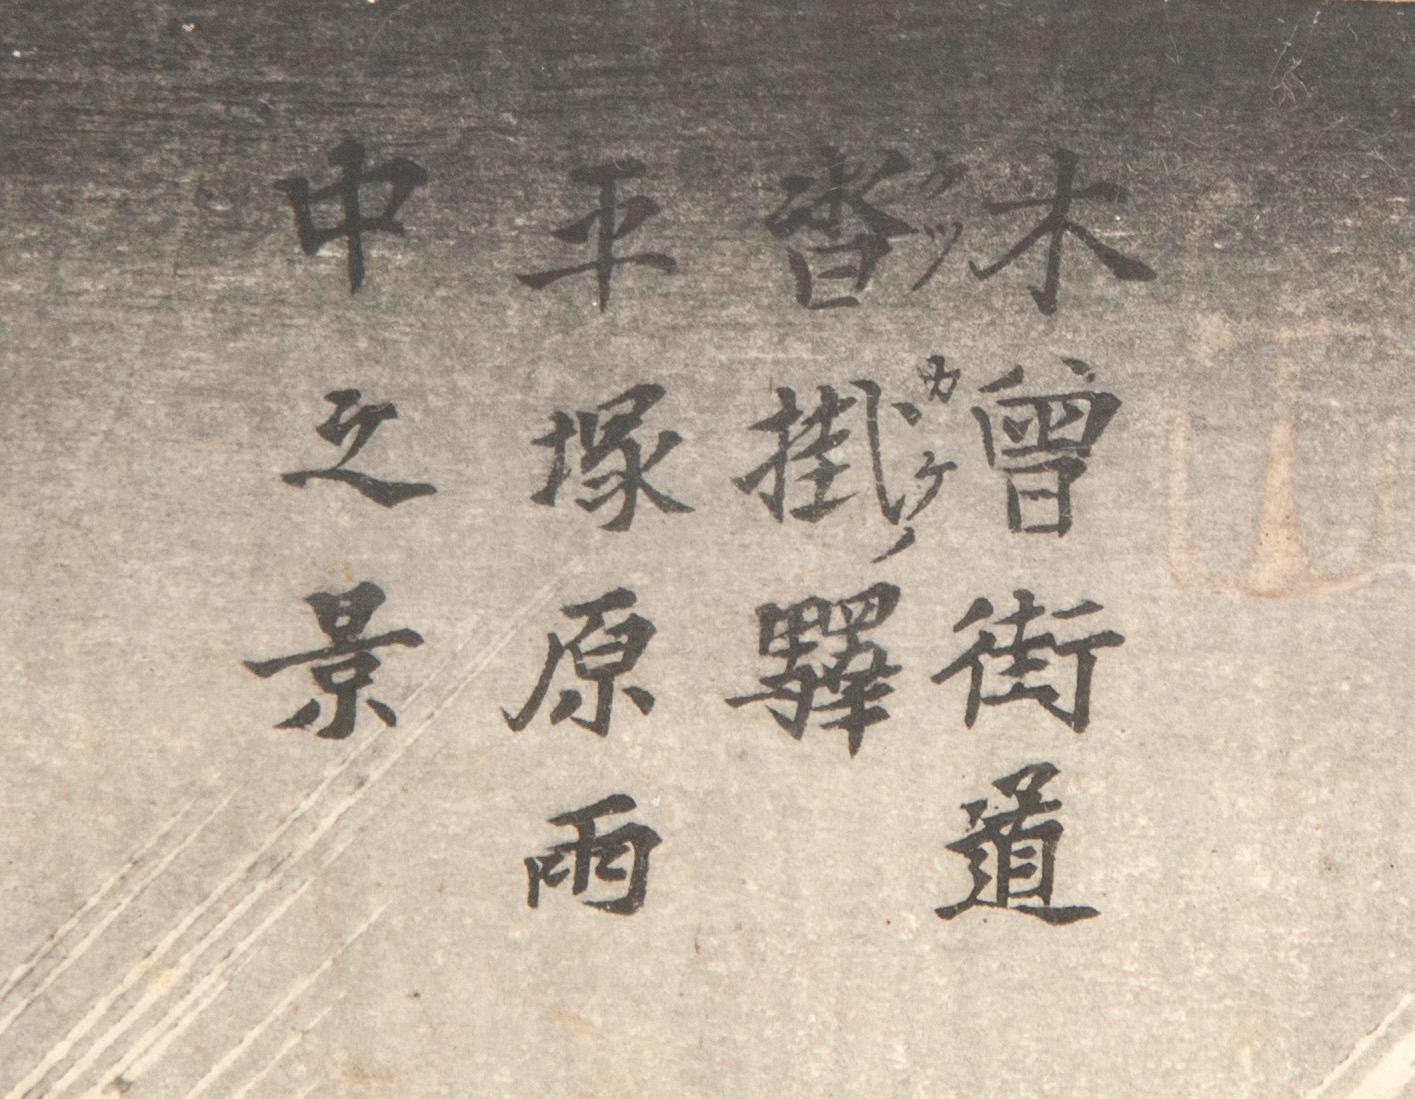 木曾街道
沓掛ノ驛
クツカケ
平塚原雨
中之景